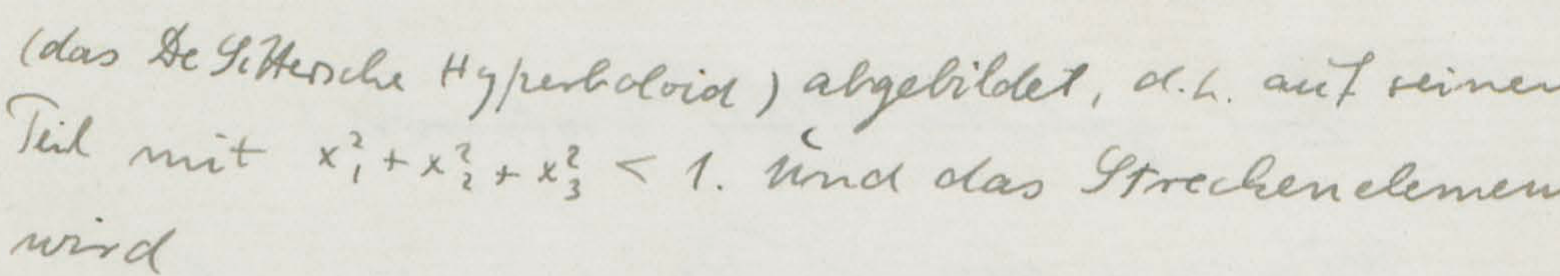 (das De Sittersche Hyperboloid) abgebildet, d.h. auf seinen
Teil mit x₁² + x₂² + x₃² < 1. und das Streckenelemen
wird